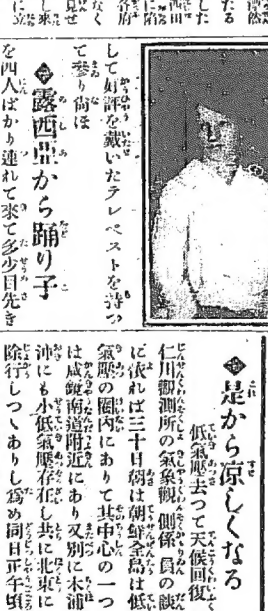 たる
した
西田
に陷
各府
なく
見せ
し來
に立
して好評を戴いたテレベストを持つ
て參り尙ほ
◈露西亞から踊り子
を四人ばかり連れて來て多少目先き
◈是から涼しくなる
低氣壓去つて天候回復
仁川觀測所の氣象觀側係員の談
に依れば三十日朝は朝鮮全島は低
氣壓の圏内にありて其中心の一つ
は咸鏡南道附近にあり又別に木浦
沖にも小低氣壓存在し共に北東に
除行しつゝありし爲め同日正午頃